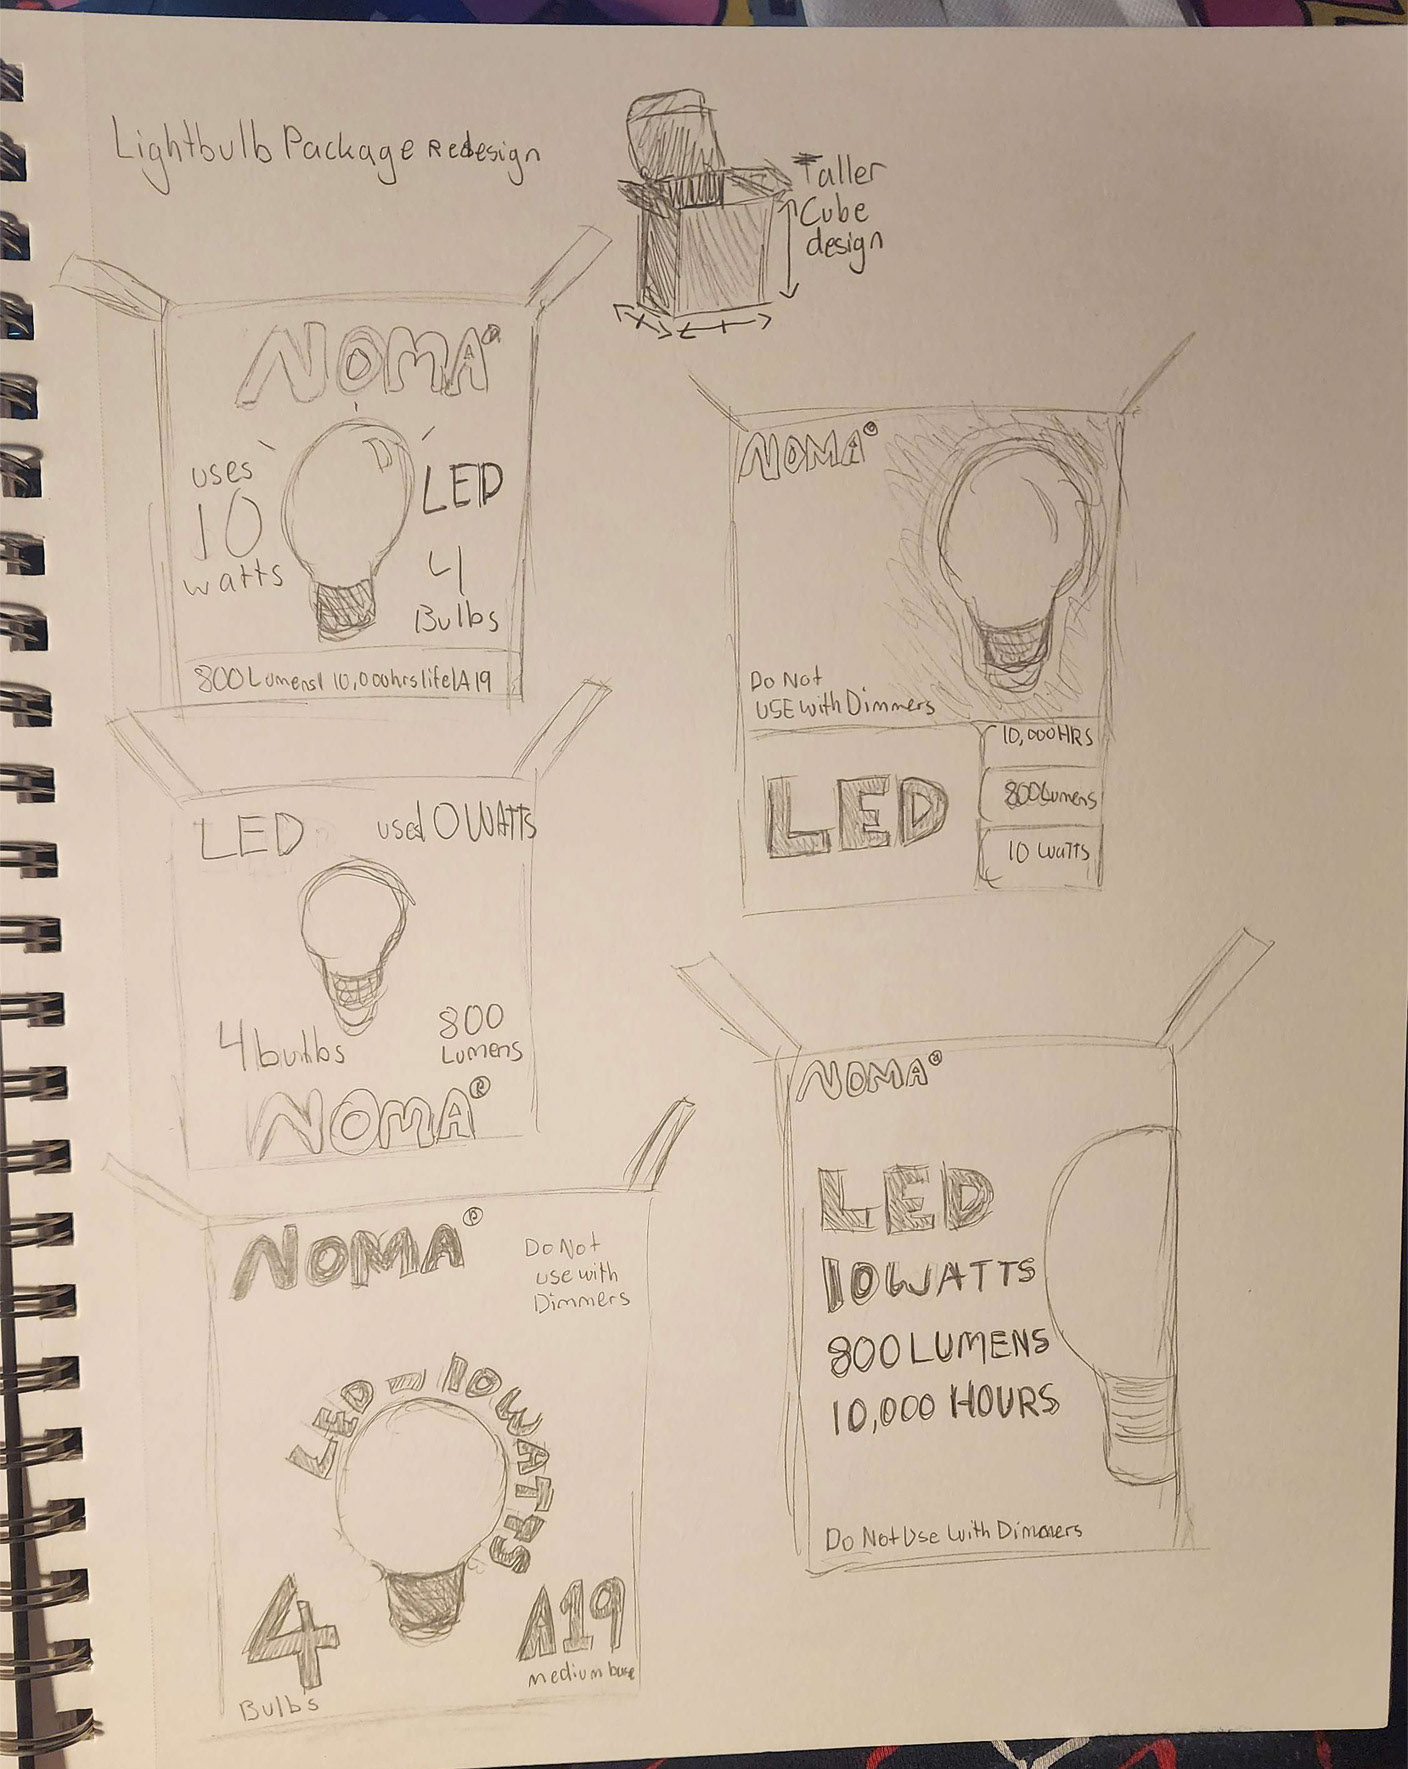 Lightbulb Package Redesign
Taller
Cube
design
NOMA®
uses
10
watts
LED
4
Bulbs
800 Lumens| 10,000hrs life|A19
NOMA®
Do Not
USE with Dimmers
LED
10,000HRS
800Lumens
10 watts
LED
used 0 WATTS
4 bulbs
800
Lumens
NOMA®
NOMA®
LED
10WATTS
800 LUMENS
10,000 HOURS
Do Not Use With Dimmers
NOMA®
Do Not
use with
Dimmers
LED - 10WATTS
4
Bulbs
A19
medium base